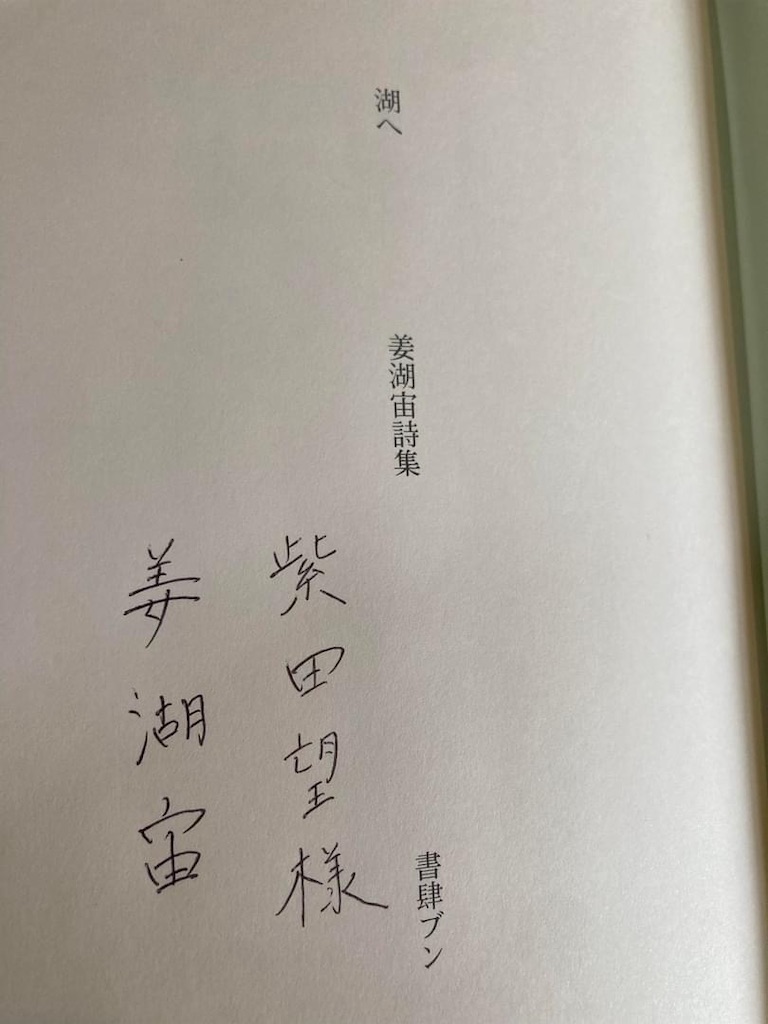 湖へ
姜湖宙詩集
書肆ブン
紫田望様
姜湖宙